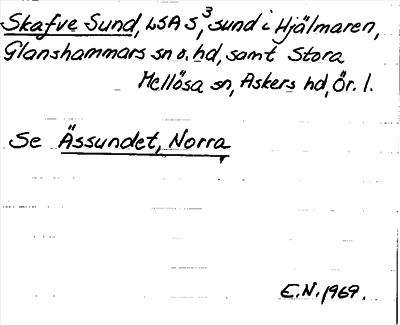 Skafve Sund, LSA S³, sund i Hjälmaren,
Glanshammars sn o. hd, samt Stora
Mellösa sn, Askers hd, Ör. l.
Se Ässundet, Norra
E.N. 1969.